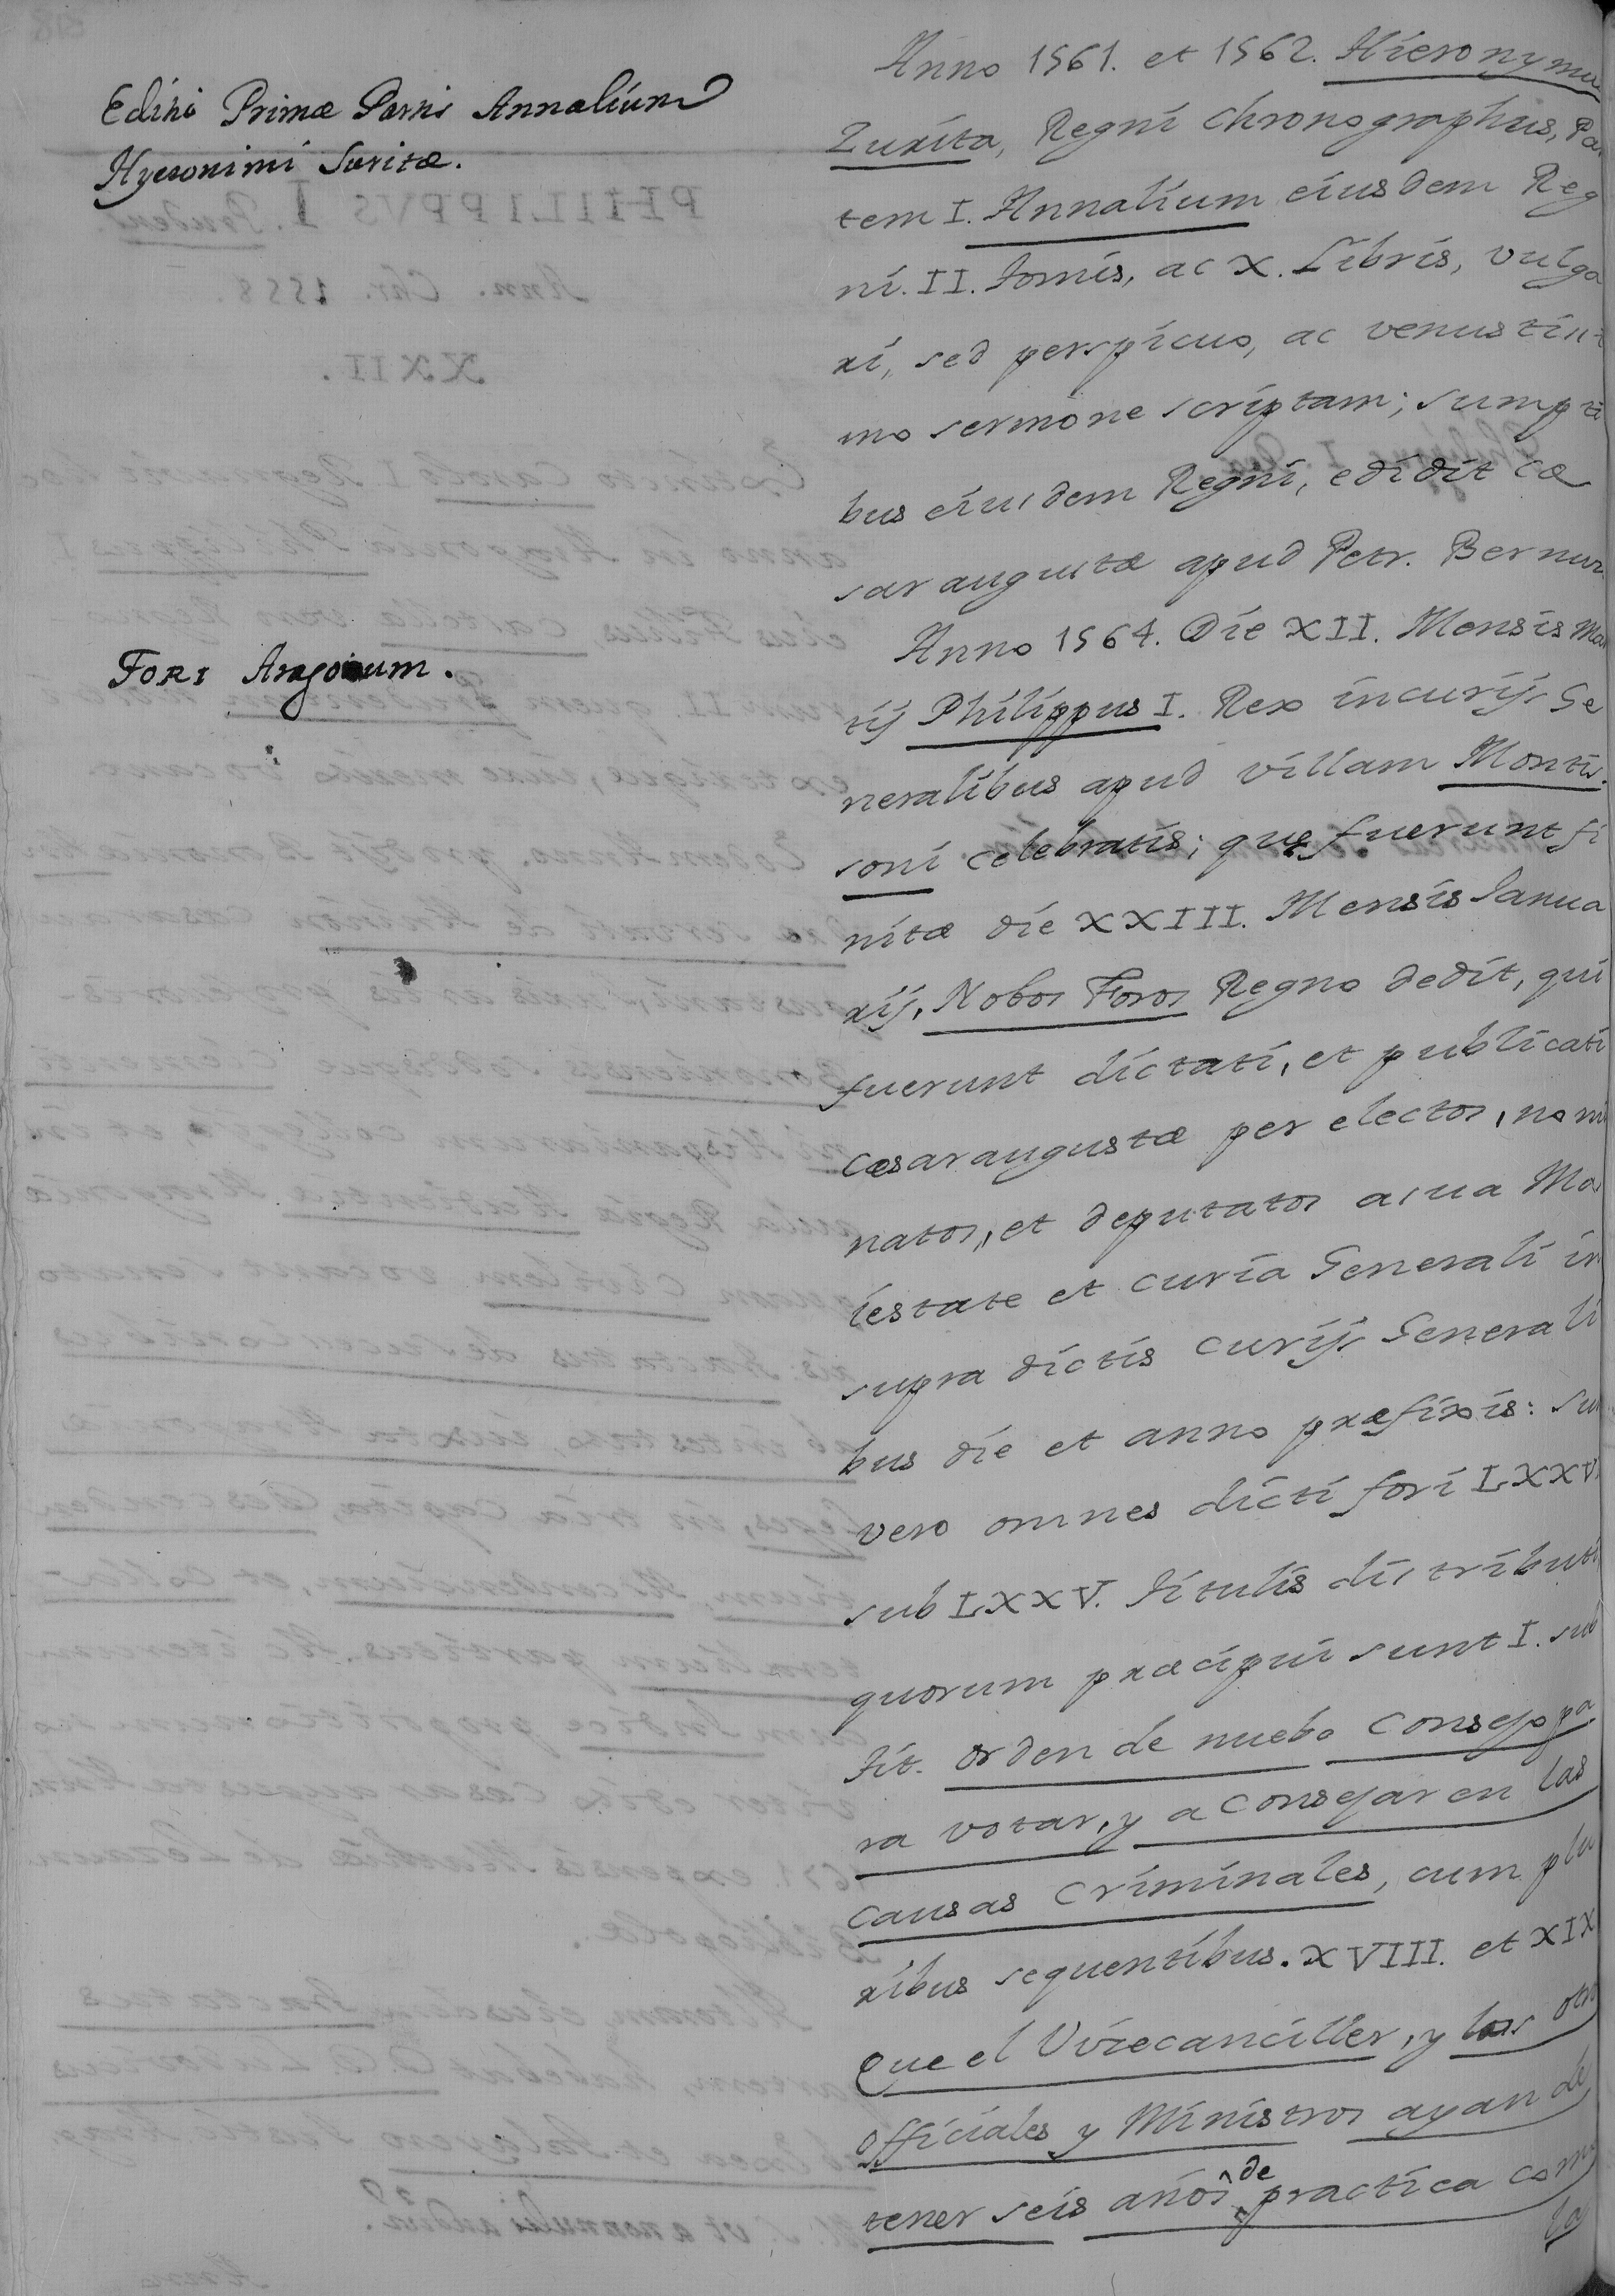 Editio Primæ Partis Annalium
Hyeronimi Suritæ.
Anno 1561. et 1562. Hieronymu
Zurita, Regni chronographus, Par
tem I. Annalium eiusdem Reg
ni. II. Tomis, ac X. Libris, vulga
ri, sed perspicuo, ac venustiss
mo sermone scriptam; sumpti
bus eiusdem Regni, edidit cæ
saraugustæ apud Petr. Bernuz.
Fori Aragonum.
Anno 1564. Die XII. Mensis Mar
tij Philippus I. Rex in curijs Ge
neralibus apud villam Montis.
soni celebratis; quæ fuerunt fi
nitæ die XXIII. Mensis Ianua
rij, Nobos Foros Regno dedit, qui
fuerunt dictati, et publicati
cæsaraugustæ per electos, nomi
natos, et deputatos a sua Ma
iestate et curia Generali in
supra dictis curijs Generali
bus die et anno præfixis: sun
vero omnes dicti fori LXXV.
sub LXXV. Titulis distributi
quorum præcipui sunt I. sub
Tit. orden de nuebo Consejo pa
ra votar, y aconsejar en las
causas criminales, cum plu
ribus sequentibus. XVIII. et XIX
Que el Vizecanciller, y los otro
officiales y Ministros ayan de
tener seis años de practica como
la